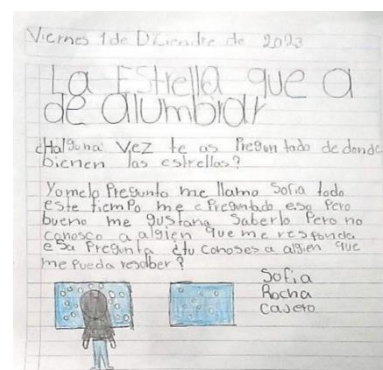 Viernes 1 de Diciendre de 2023
La Estrella que a
de alumbrar
¿Halguna vez te as Pregun tado de donde
bienen las estrellas?
Yo melo Pregunto me llamo Sofia todo
este tiempo me e Preguntado eso Pero
bueno me gustaria Saberlo Pero no
conosco a algien que me responda
esa Pregunta ¿tu conoses a algien que
me pueda resolber?
Sofia
Rocha